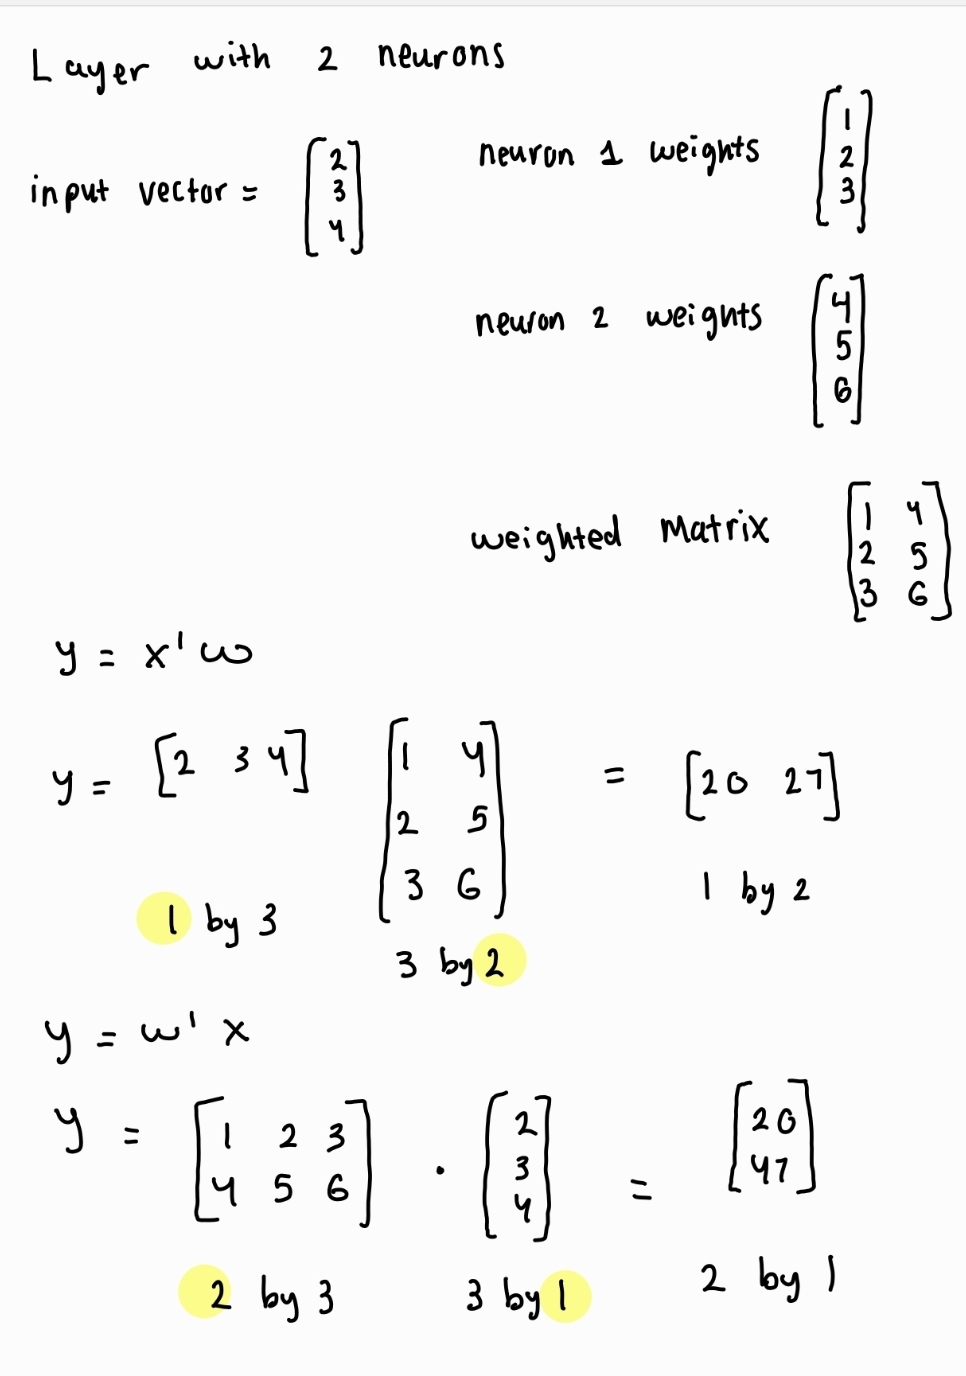 Layer with 2 neurons
input vector = [2 3 4]
neuron 1 weights [1 2 3]
neuron 2 weights [4 5 6]
weighted Matrix [1 4
2 5
3 6]
y = x'w
y = [2 3 4] [1 4
2 5
3 6] = [20 27]
1 by 3
3 by 2
1 by 2
y = w'x
y = [1 2 3
4 5 6] · [2
3
4] = [20
47]
2 by 3
3 by 1
2 by 1